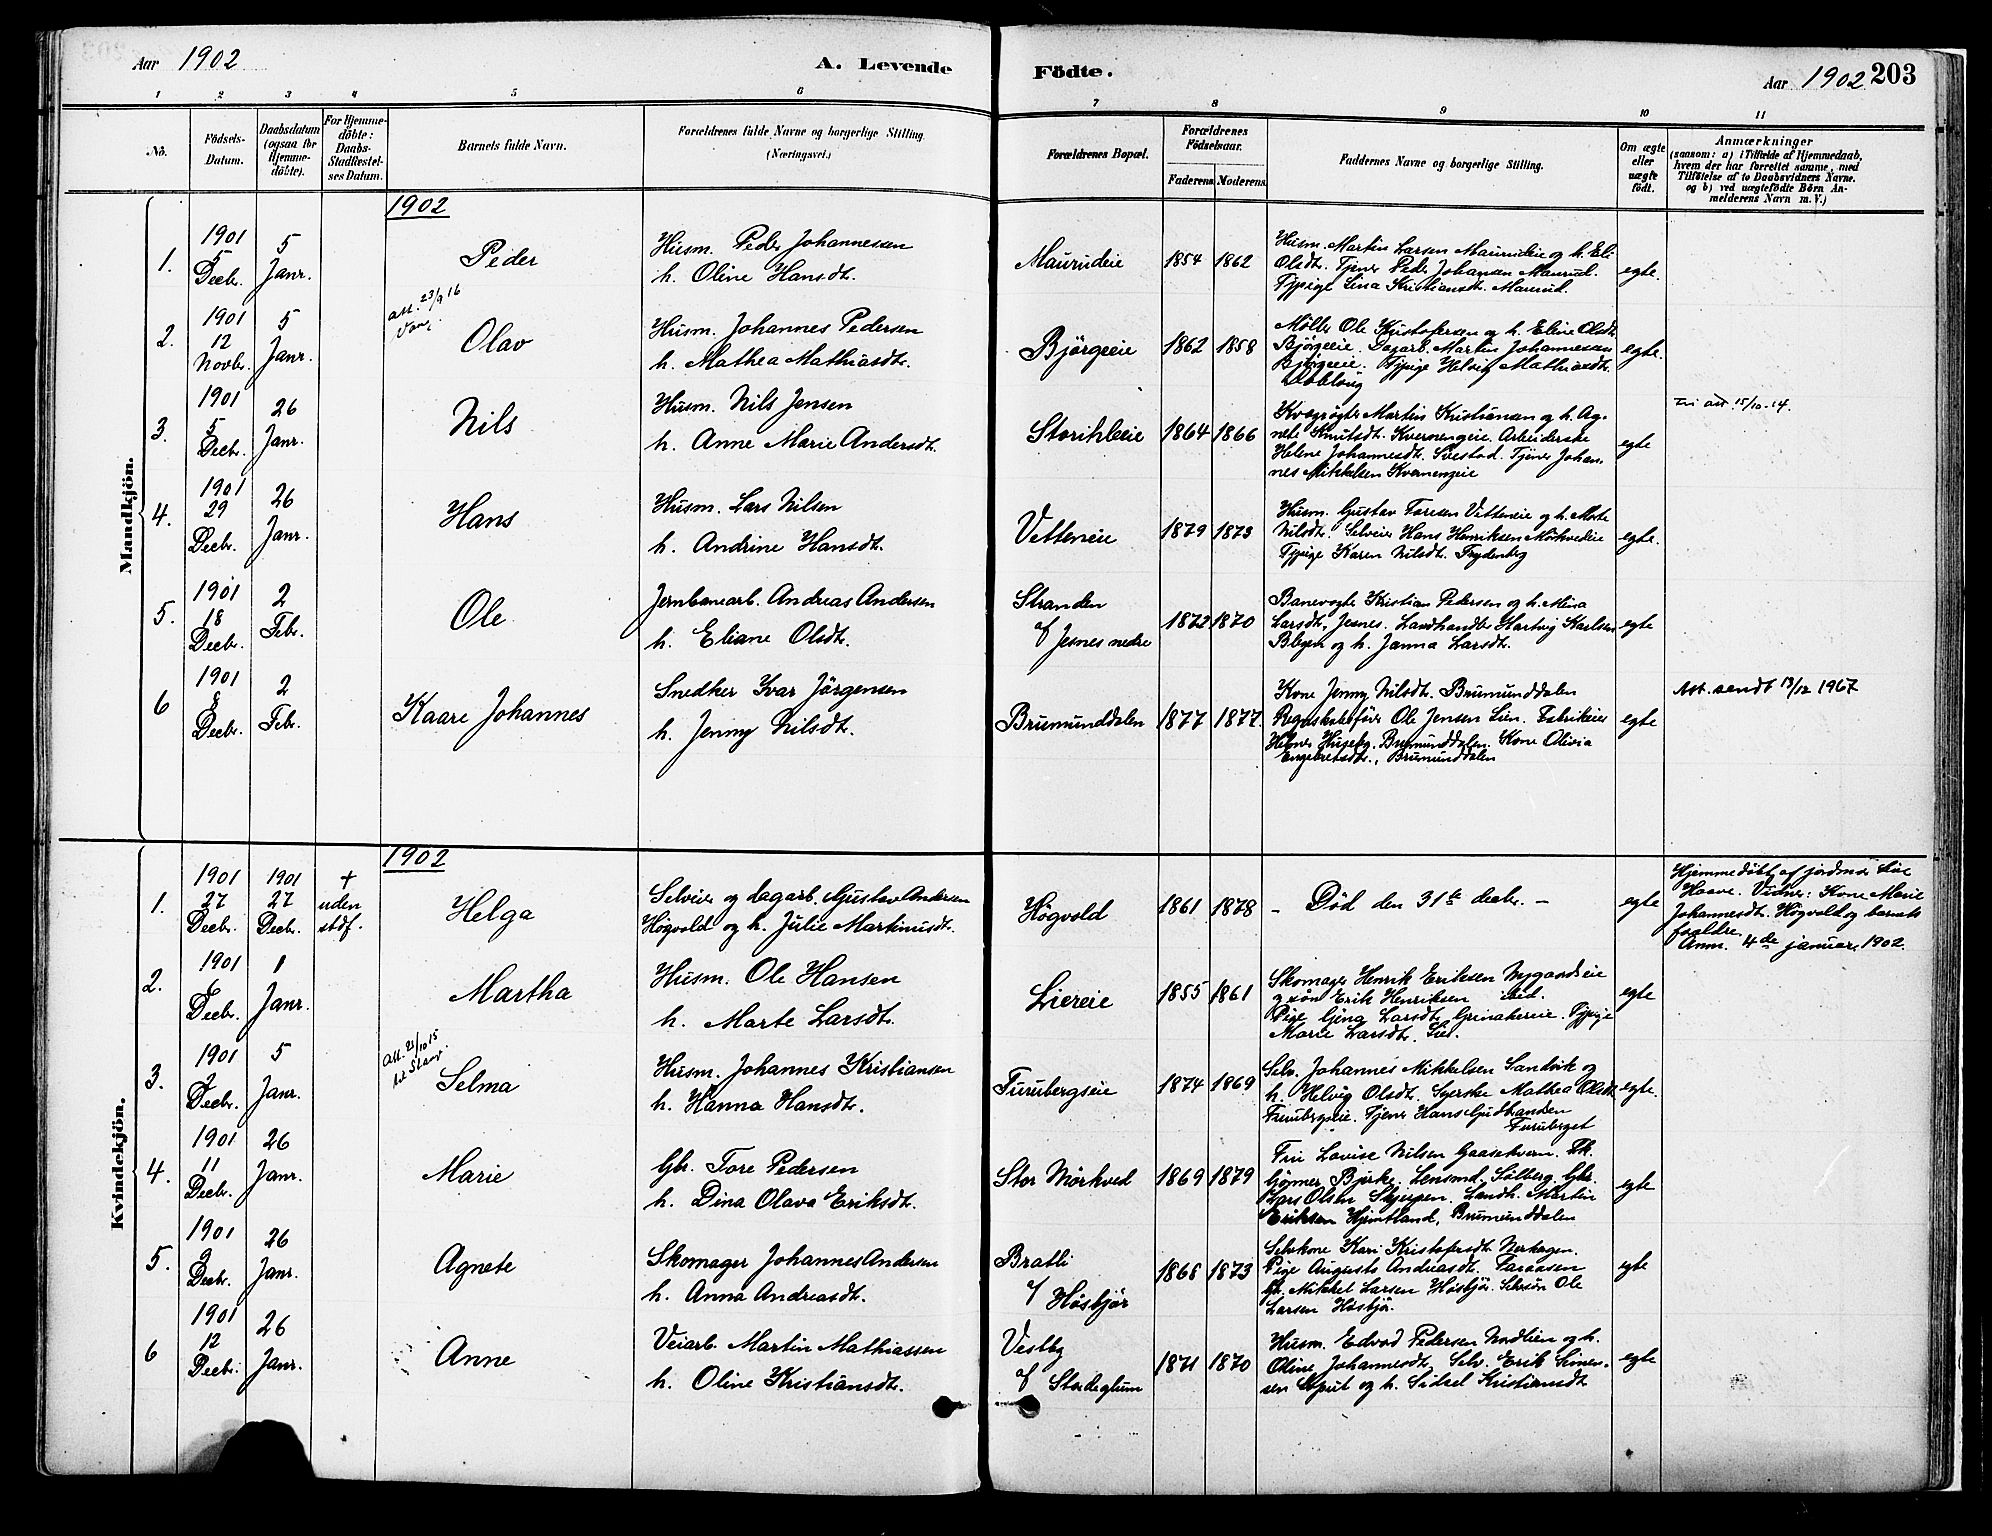 Aar 1902
A. Levende
Födte.
Aar 1902 203
1 2 3 4 5 6 7 8 9 10 11
No.
Födsels-
Datum.
Daabsdatum
(ogsaa for
Hjemme-
döbte).
For Hjemme-
döbte:
Daabs-
Stadfæstel-
ses Datum.
Barnets fulde Navn.
Forældrenes fulde Navne og borgerlige Stilling.
(Næringsvei.)
Forældrenes Bopæl.
Forældrenes
Födselsaar.
Faderens. Moderens.
Faddernes Navne og borgerlige Stilling.
Om ægte
eller
uægte
födt.
Anmærkninger
(saasom: a) i Tilfælde af Hjemmedaab,
hvem der har forrettet samme, med
Tilföielse af to Daabsvidners Navne.
og b) ved uægtefödte Börn An-
melderens Navn m. V.)
Mandkjön.
1902
1.
1901
5
Decbr.
5
Janr.
Peder
Husm. Peder Johannessen
h. Oline Hansdt.
Maurudeie
1854 1862
Husm. Martin Larsen Maurudeie og h. Eli
Olsdt. Tjener Peder Johansen Maurud.
Tjpige Lina Kristiansdt. Maurud.
egte.
2.
1901
12
Novbr.
5
Janr.
att. 23/9 16
Olav
Husm. Johannes Pedersen
h. Mathea Mathiasdt.
Bjørgeeie
1862 1858
Møller Ole Kristofersen og h. Eline Olsdt
Bjørgeeie. Dagarb. Martin Johannesen
Bjørgeeie. Tjpige Helvig Mathiasdt.
egte.
3.
1901
5
Decbr.
26
Janr.
Nils
Husm. Nils Jensen
h. Anne Marie Andersdt.
Storihleeie
1864 1866
Kvægrøgter Martin Kristiansen og h. Ag-
nete Knutsdt. Kvernengeie. Arbeiderske
Helene Johannesdt. Svestad. Tjener Johan-
nes Mikkelsen Kvernengeie
egte
Fri att 15/10-14.
4.
1901
29
Decbr.
26
Janr.
Hans
Husm. Lars Nilsen
h. Andrine Hansdt.
Vetteneie
1879 1873
Husm. Gustav Toresen Vetteneie og h. Marte
Nilsdt. Selveier Hans Henriksen Mørkvedeie
Tjpige Karen Nilsdt. Frydenberg
egte.
5.
1901
18
Decbr.
2
Febr.
Ole
Jernbanearb. Andreas Andersen
h. Eliane Olsdt.
Stranden
af Jesnes nedre
1872 1870
Banevogter Kristian Pedersen og h. Mina
Larsdt, Jesnes. Landhandler Hartvig Karlsen
Blegen og h. Janna Larsdt.
egte
6
1901
8
Decbr.
2
Febr.
Kaare Johannes
Snedker Ivar Jörgensen
h. Jenny Nilsdt.
Brumunddalen
1877 1877.
Kone Jenny Nilsdt. Brumunddalen
Regnskabsfører Ole Jensen Lien. Fabrikeier
Helmer Huseby, Brumunddalen. Kone Olivia
Engebretsdt., Brumunddalen
egte
Att. sendt 13/12 1967
Kvindekjön.
1902
1.
1901
27
Decbr.
1901
27
Decbr.
+
uden
stdf.
Helga
Selveier og dagarb. Gustav Andersen
Høgvold og h. Julie Martinusdt.
Høgvold
1861 1878
– Død den 31te decbr. –
egte
Hjemmedøbt af jordmor
Haave. Vidner: Kone Marie
Johannesdt. Høgvold og barnets
forældre.
Anm. 4de januar 1902.
2.
1901
6
Decbr.
1
Janr.
Martha
Husm. Ole Hansen
h. Marte Larsdt.
Liereie
1855 1861
Skomager Henrik Eriksen Nygaardseie
og søn Erik Henriksen ibid.
Pige Gina Larsdt, Grinakereie. Tjpige
Marie Larsdt. Lier.
egte
3.
1901
2
Decbr.
5
Janr.
att. 21/10 15
Selma
Husm. Johannes Kristiansen
h. Hanna Hansdt.
Furubergseie
1874 1869
Selv. Johannes Mikkelsen Sandvik og
h. Helvig Olsdt. Syerske Mathea Olsdt
Furubergseie. Tjener Hans Gudbranden
Furuberget
egte.
4.
1901
11
Decbr.
26
Janr.
Marie
Gbr. Tore Pedersen
h. Dina Olava Eriksdt.
Stor Mørkved
1869 1879
Fru Lovise Nilsen Gaasekvern. Frk.
Gjømer Bjerke. Lensmd. Solberg. Gbr.
Lars Olsen Skjerpen. Landh. Martin
Eriksen Hjemtland, Brumunddalen
egte
5.
1901
9
Decbr.
26
Janr.
Agnete
Skomager Johannes Andersen
h. Anna Andreasdt.
Bratli
af Høsbjør
1868 1873
Selvkone Kari Kristofersdt. Nerhagen.
Pige Augusta Andreasdt. Faraasen
Gbr. Mikkel Larsen Høsbjør. Selvsøn Ole
Larsen Høsbjør.
egte
6
1901
12
Decbr.
26
Janr.
Anne
Veiarb. Martin Mathiassen
h. Oline Kristiansdt.
Vestby
af Stordeglum
1871 1870
Husm. Edvard Pedersen Nordlien og h.
Oline Johannesdt. Selv. Erik Simen-
sen Sput og h. Sidsel Kristiansdt
egte